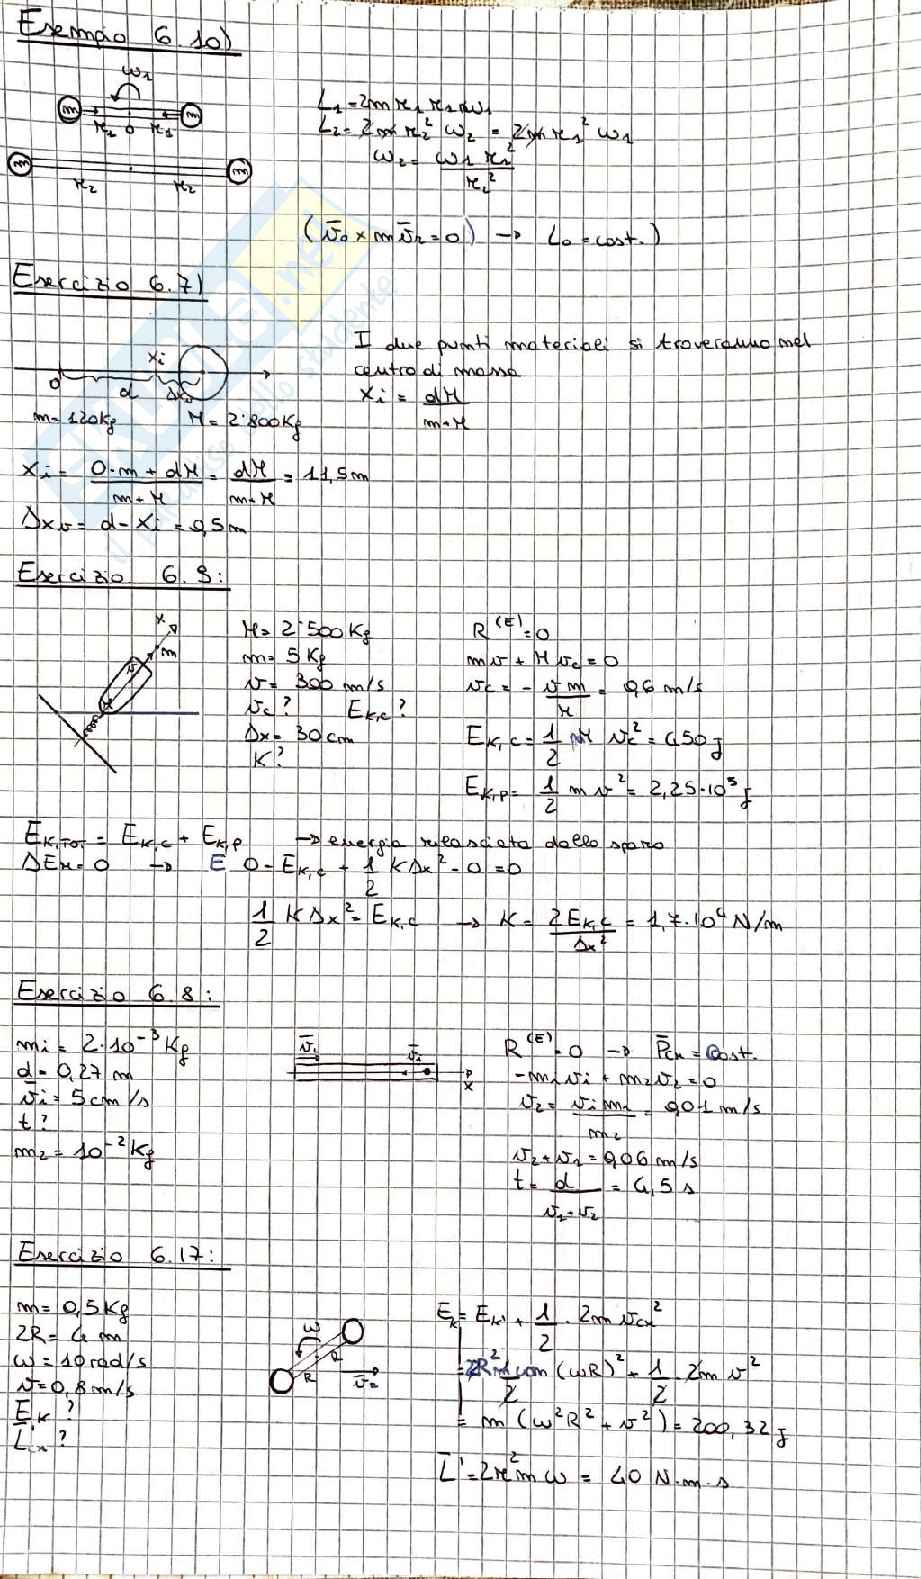 Esempio 6.10)
ω₁
m r₁ 0 r₁ m
m r₂ r₂ m
L₁ = 2m r₁ r₁ ω₁
L₂ = 2m r₂² ω₂ = 2m r₁² ω₁
ω₂ = ω₁ r₁² / r₂²
(v̄₀ × m v̄₂ = 0) → L₀ = cost.)
Esercizio 6.7)
xi
0 d
m = 120Kg M = 2'800Kg
I due punti materiali si troveranno nel
centro di massa
xi = dM / m+M
xi = 0·m + dM / m+M = dM / m+M = 11,5m
Δxv = d - xi = 0,5m
Esercizio 6.9:
x
m
v
M = 2'500 Kg
m = 5 Kg
v = 300 m/s
vc? Ek,c?
Δx = 30 cm
K?
R⁽ᴱ⁾ = 0
mv + M vc = 0
vc = - v m / M = 0,6 m/s
Ek,c = 1/2 M vc² = 450 J
Ek,p = 1/2 m v² = 2,25·10⁵ J
Ek,TOT = Ek,c + Ek,p → energia rilasciata dallo sparo
ΔEm = 0 → E 0 - Ek,c + 1/2 KΔx² - 0 = 0
1/2 KΔx² = Ek,c → K = 2Ek,c / Δx² = 1,7·10⁴ N/m
Esercizio 6.8:
m₁ = 2·10⁻³ Kg
d = 0,27 m
v̄i = 5 cm/s
t?
m₂ = 10⁻² Kg
x
R⁽ᴱ⁾ = 0 → P̄cm = Cost.
-m₁v₁ + m₂v₂ = 0
v₂ = v₁m₁ / m₂ = 0,01 m/s
v₂ + v₁ = 0,06 m/s
t = d / v₁-v₂ = 4,5 s
Esercizio 6.17:
m = 0,5 Kg
2R = 4 m
ω = 10 rad/s
v = 0,8 m/s
Ek ?
ω
R R
Ek = Ek' + 1/2 · 2m vcm²
(ωR)² + 1/2 2m v²
= m (ω²R² + v²) = 200,32 J
L̄' = 2r²m ω = 40 N·m·s